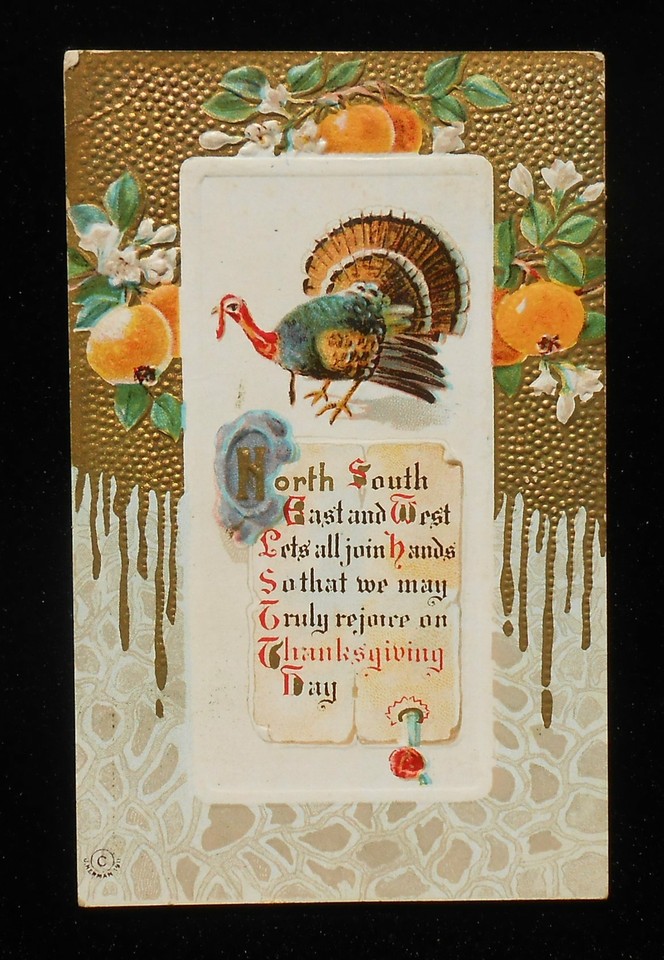 North South
East and West
Lets all join hands
So that we may
Truly rejoice on
Thanksgiving
Day
C